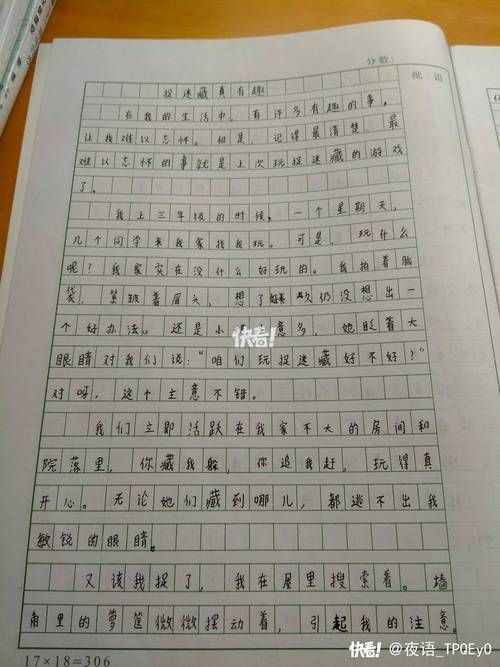 分数:
批语
捉迷藏真有趣
在我的生活中。有许多有趣的事,
让我难以忘怀。但是,记得最清楚、最
难以忘怀的事就是上次玩捉迷藏的游戏
了。
我上三年级的时候,一个星期天,
几个同学来我家找我玩。可是,玩什么
呢?我家实在没什么好玩的。我拍着脑
袋,紧皱着眉头,想了好久仍没想出一
个好办法。还是小主意多,她眨着大
眼睛对我们说:“咱们玩捉迷藏好不好?”
对呀,这个主意不错。
我们立即活跃在我家不大的房间和
院落里,你藏我躲,你追我赶,玩得真
开心。无论她们藏到哪儿,都逃不出我
敏锐的眼睛。
又该我捉了,我在屋里搜索着。墙
角里的萝筐微微摆动着,引起我的注意。
17×18=306
快看!
快看! @夜语_TPQEy0